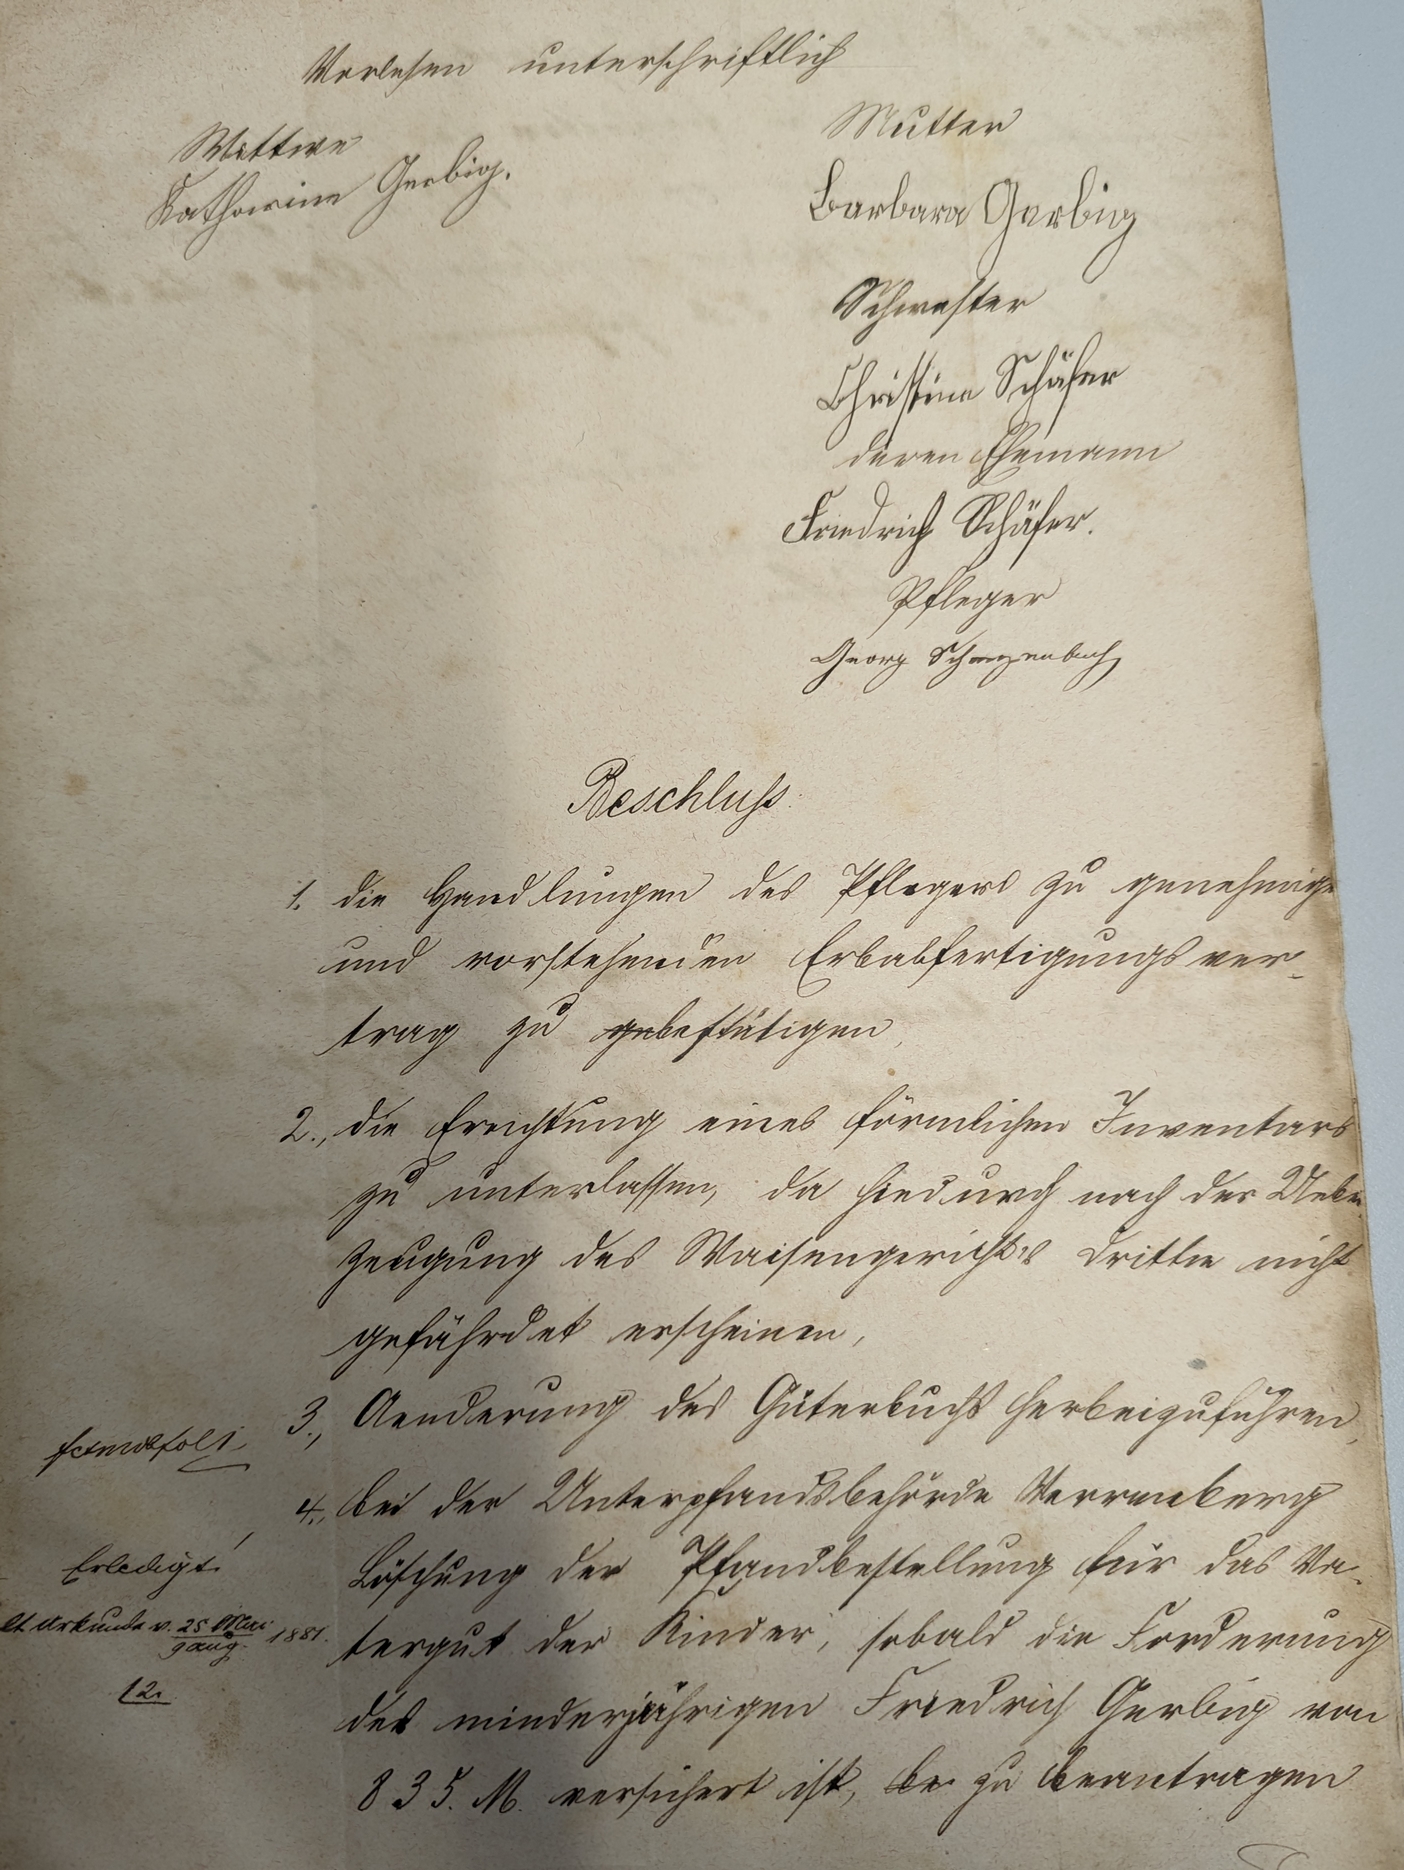 Vorlesen unterschriftlich
Wittwe
Katharine Gerbig.
Mutter
Barbara Gerbig
Schwester
Christine Schäfer
deren Ehemann
Friedrich Schäfer.
Pfleger
Georg
Beschluß.
1. die Handlungen des Pflegers zu genehmige
und vorstehenden Erbabfertigungsver-
trag zu gebestätigen,
2., die Errichtung eines förmlichen Inventars
zu unterlassen, da hiedurch nach der Ueber
zeugung des Waisengerichts dritte nicht
gefährdet erscheinen,
3., Aenderung des Güterbuchs herbeizuführen,
4., bei der Unterpfandsbehörde Verrenberg
Löschung der Pfandbestellung für das Va-
tergut der Kinder, sobald die Forderung
des minderjährigen Friedrich Gerbig von
835. M. versichert ist, be zu beantragen
Erledigt!
lt Urkunde v. 25 Mai
9 Aug. 1881.
12.